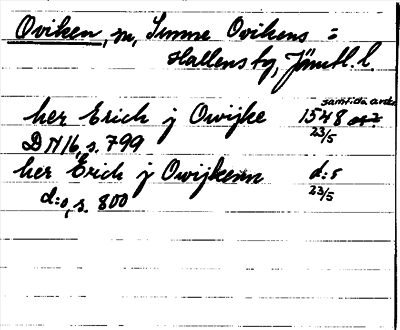 Oviken, sn, Sunne Ovikens =
Hallens tg, Jämtl. l.
samtida anteckn.
her Erich j Owijke 1548
23/5
DN 16, s. 799
her Erich j Owijkenn d:o
23/5
d:o, s. 800